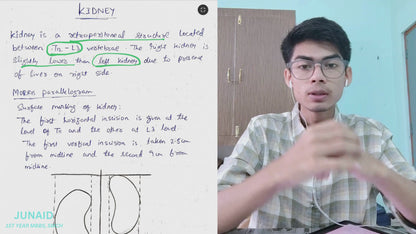 KIDNEY
Kidney is a retroperitoneal structure located
between T12 - L3 vertebrae. The right kidney is
slightly lower than left kidney due to presence
of liver on right side.
Morris parallelogram
Surface marking of kidney:
The first horizontal incision is given at the
level of T11 and the other at L3 level.
The first vertical incision is taken 2.5cm
from midline and the second 9cm from
midline
JUNAID
1ST YEAR MBBS,